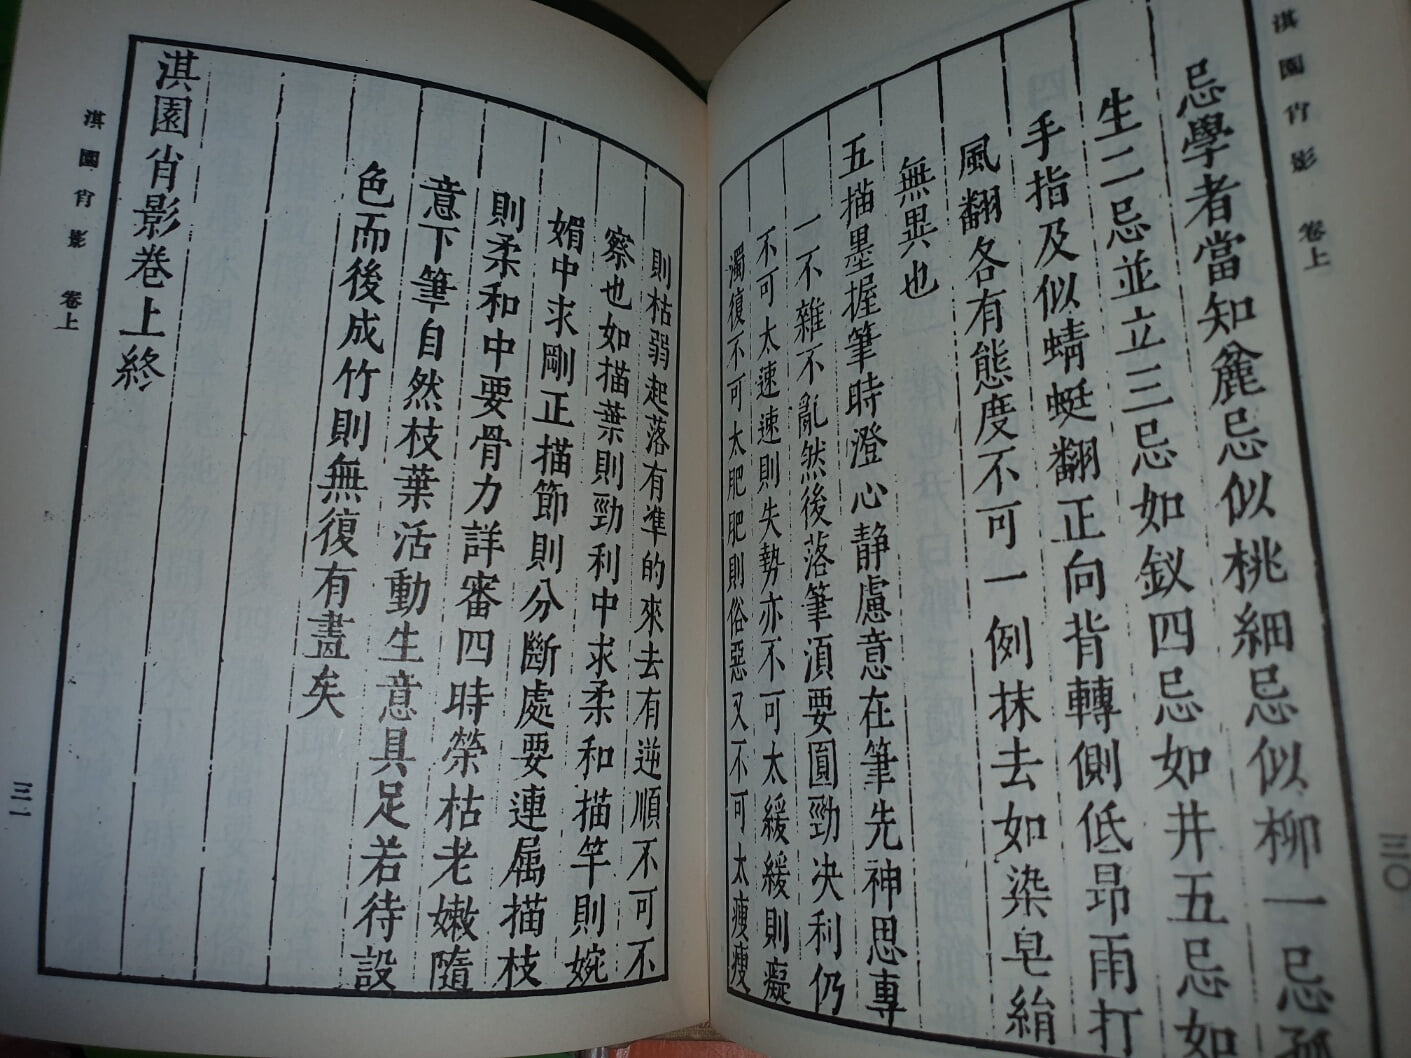 淇園肖影 卷上
三〇
忌學者當知麄忌似桃細忌似柳一忌孤
生二忌並立三忌如釵四忌如井五忌如
手指及似蜻蜓翻正向背轉側低昻雨打
風翻各有態度不可一例抹去如染皂絹
無異也
五描墨握筆時澄心静慮意在筆先神思專
一不雜不亂然後落筆湏要圓勁决利仍
不可太速速則失勢亦不可太緩緩則癡
濁復不可太肥肥則俗惡又不可太瘦瘦
則枯弱起落有凖的來去有逆順不可不
察也如描葉則勁利中求柔和描竿則婉
媚中求剛正描節則分斷處要連属描枝
則柔和中要骨力詳審四時榮枯老嫩隨
意下筆自然枝葉活動生意具足若待設
色而後成竹則無復有畫矣
淇園肖影卷上終
淇園肖影 卷上
三一